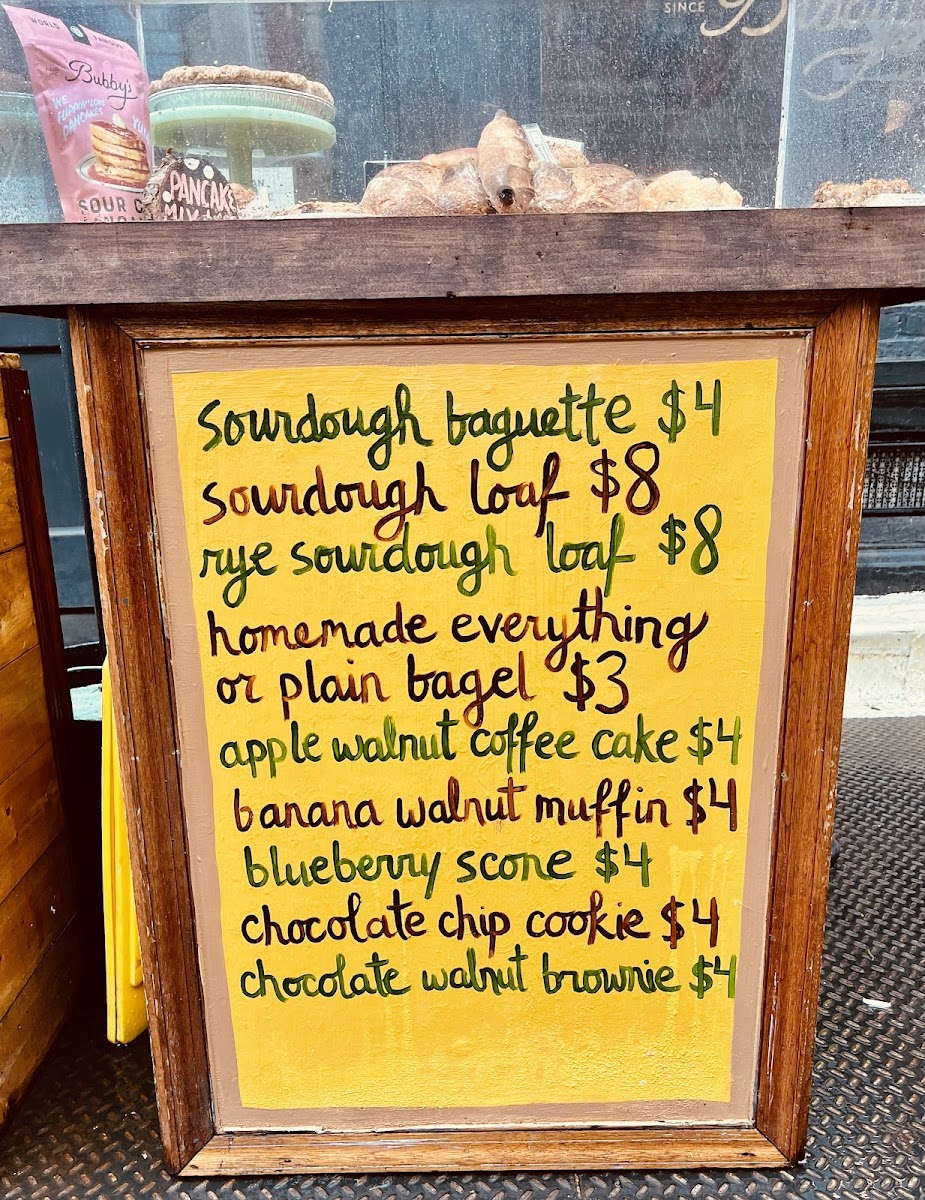 SINCE
WORLD FAMOUS
Bubby's
WE
FLIPPIN' LOVE
PANCAKES
YUM
SOUR
PANCAKE
MIX
sourdough baguette $4
sourdough loaf $8
rye sourdough loaf $8
homemade everything
or plain bagel $3
apple walnut coffee cake $4
banana walnut muffin $4
blueberry scone $4
chocolate chip cookie $4
chocolate walnut brownie $4